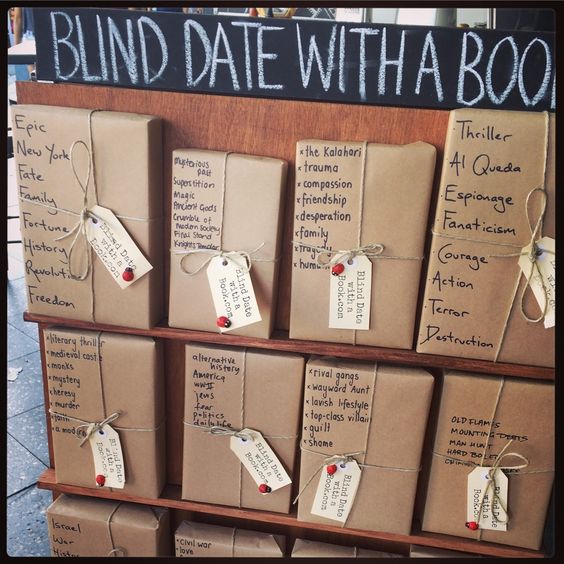 BLIND DATE WITH A BOO
Epic
New York
Fate
Family
Fortune
History
Revolution
Freedom
Blind Date
with a
Book.com
Mysterious
past
Superstition
Magic
Ancient Gods
Crumble of
modern Society
Final Stand
Knights Templar
Blind Date
with a
Book.com
x the Kalahari
x trauma
x compassion
x friendship
x desperation
x family
x tragedy
x human
Blind Date
with a
Book.com
Thriller
Al Queda
Espionage
Fanaticism
Courage
Action
Terror
Destruction
x literary thriller
x medieval castle
x monks
x mystery
x heresy
x murder
x faith
x a mod
Blind Date
with a
Book.com
alternative
history
America
WWII
jews
fear
politics
daily life
Blind Date
with a
Book.com
x rival gangs
x wayward Aunt
x lavish lifestyle
x top-class villain
x guilt
x shame
Blind Date
with a
Book.com
OLD FLAMES
MOUNTING DEBTS
MAN HUNT
HARD BOILED
Blind Date
with a
Book.com
Israel
War
History
x civil war
x love